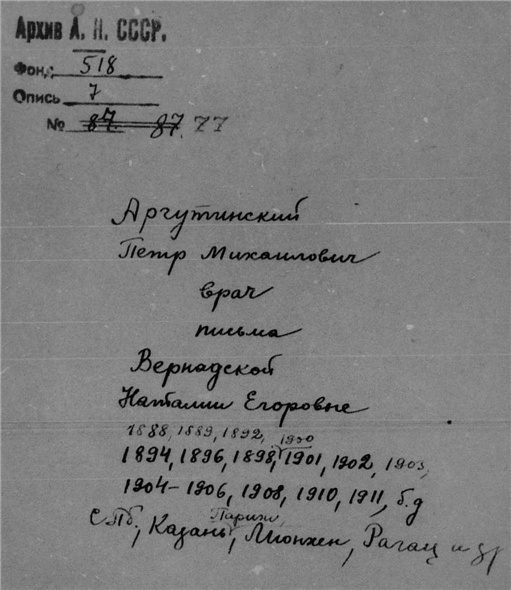 Архив А. Н. СССР.
Фонд 518
Опись 7
№ 87 87 77
Аргутинский
Петр Михаилович
врач
письма
Вернадской
Наталии Егоровне
1888, 1889, 1892, 1900
1894, 1896, 1898, 1901, 1902, 1903,
1904-1906, 1908, 1910, 1911, б.д
Париж,
СПб, Казань, Мюнхен, Рагац и др